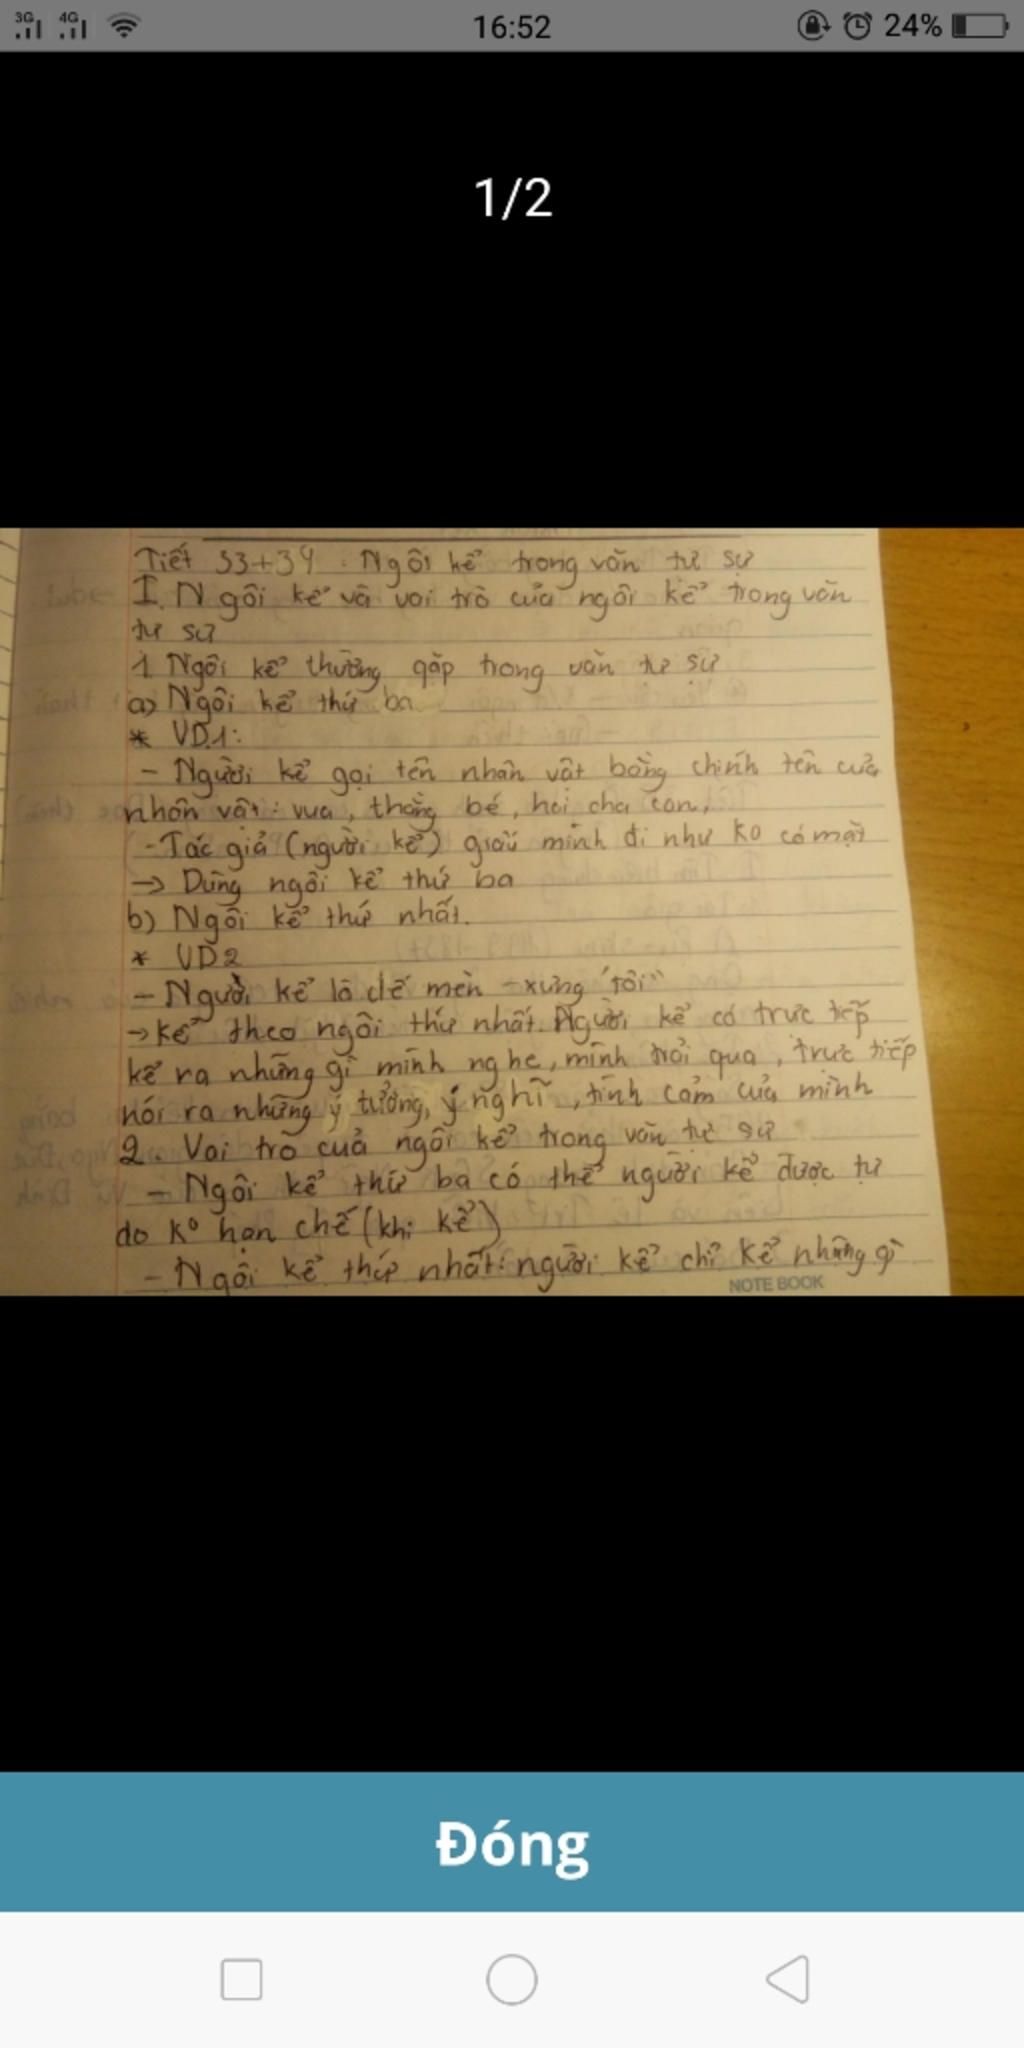 3G 4G 16:52 24%
1/2
Tiết 33+34: Ngôi kể trong văn tự sự
I. Ngôi kể và vai trò của ngôi kể trong văn
tự sự
1. Ngôi kể thường gặp trong văn tự sự
a) Ngôi kể thứ ba
* VD1:
- Người kể gọi tên nhân vật bằng chính tên của
nhân vật: vua, thằng bé, hai cha con,
- Tác giả (người kể) giấu mình đi như ko có mặt
→ Dùng ngôi kể thứ ba
b) Ngôi kể thứ nhất.
* VD2
- Người kể là dế mèn - xưng "tôi"
→ kể theo ngôi thứ nhất. Người kể có trực tiếp
kể ra những gì mình nghe, mình trải qua, trực tiếp
nói ra những ý tưởng, ý nghĩ, tình cảm của mình
2. Vai trò cuả ngôi kể trong văn tự sự
- Ngôi kể thứ ba có thể người kể được tự
do kº hạn chế (khi kể)
- Ngôi kể thứ nhất: người kể chỉ kể những gì
NOTE BOOK
Đóng